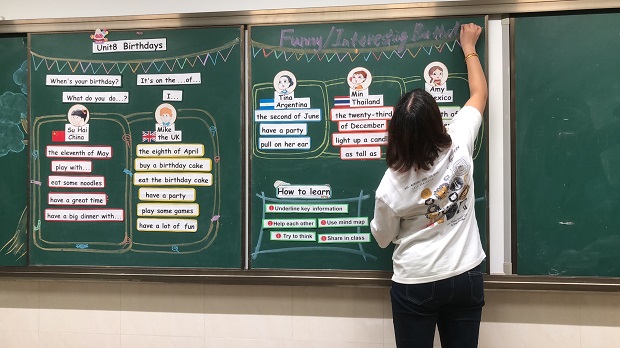 Unit8 Birthdays
When's your birthday?
It's on the...of...
What do you do...?
I...
Su Hai
China
the eleventh of May
play with...
eat some noodles
have a great time
have a big dinner with...
Mike
the UK
the eighth of April
buy a birthday cake
eat the birthday cake
have a party
play some games
have a lot of fun
Funny/Interesting
Tina
Argentina
the second of June
have a party
pull on her ear
Min
Thailand
the twenty-third
of December
light up a
as tall as
Amy
of
How to learn
Underline key information
Help each other
Use mind map
Try to think
Share in class